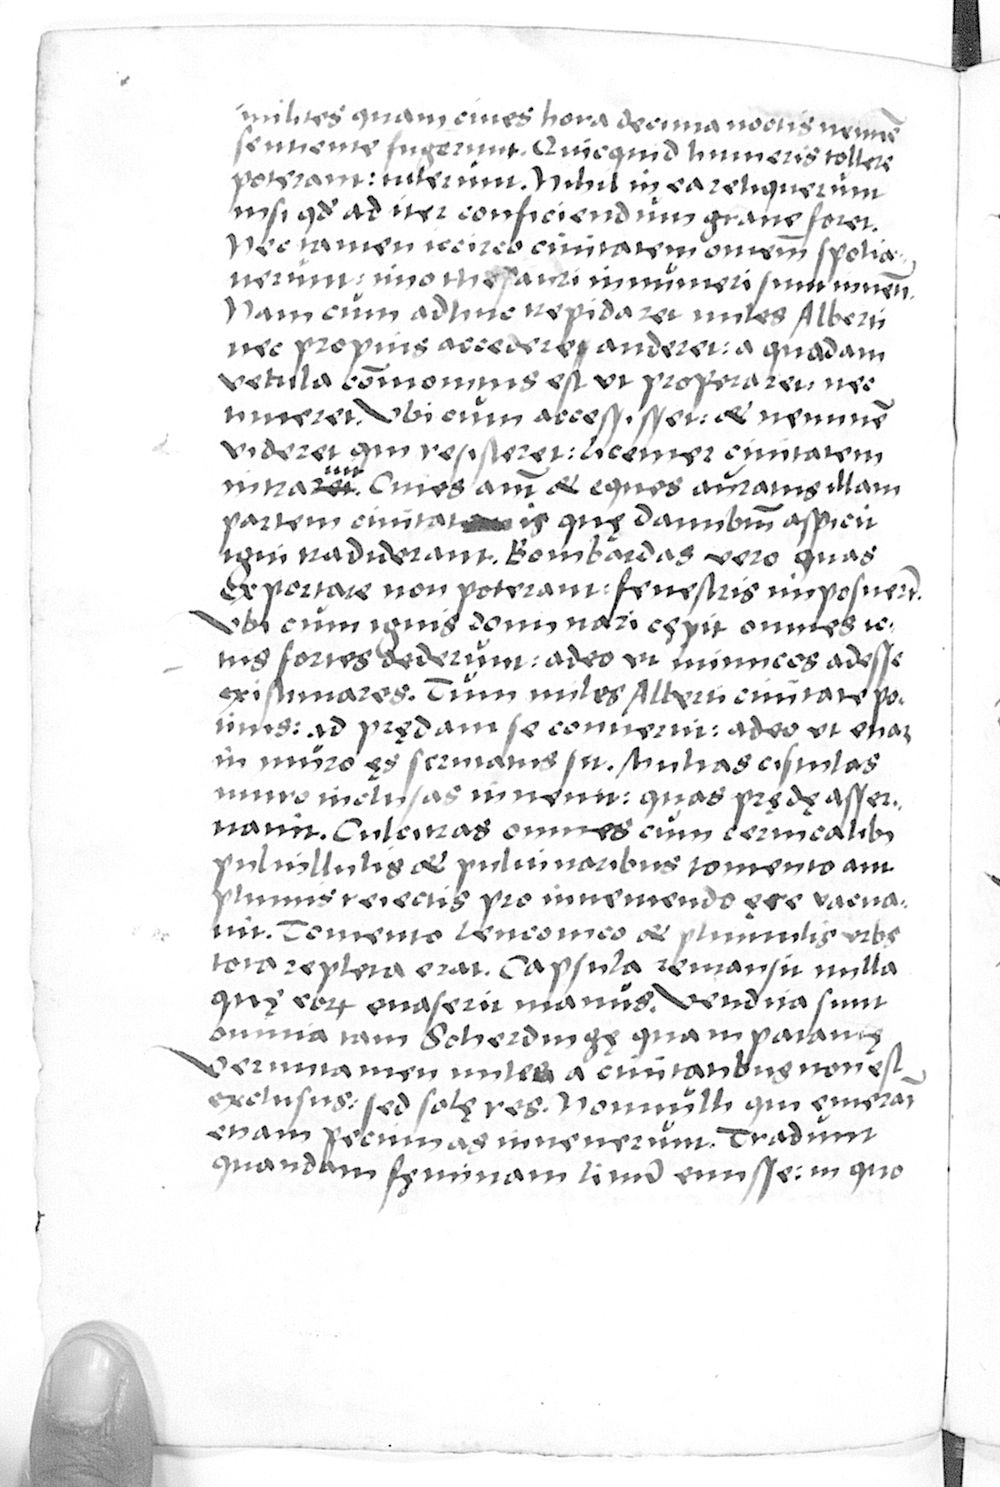 milites quam ciues hora decima noctis neminē
sentiente fugerunt. Quicquid humeris tollere
poterant: tulerunt. Nihil in ea reliquerunt
nisi qd̄ ad iter conficiendum graue foret.
Nec tamen iccirco ciuitatem omnem̄ spolia-
uerunt: imo thesauri innumeri sunt inuen̄t.
Nam cum adhuc trepidaret miles Alberti
nec propius accedere auderet: a quadam
vetula com̄onitus est vt properaret: nec
timeret. Vbi cum accessisset: & neminē
videret qui resisteret: licenter ciuitatem
intraret. Ciues aūt & eques auratus illam
partem ciuitatis quę danubiū aspicit
igni tradiderant. Bombardas vero quas
exportare non poterant: fenestris imposuert̄.
Vbi cum ignis dominari cępit omnes ic-
tus fortes dederunt: adeo vt inimicos adesse
existimares. Tum miles Alberti ciuitate po-
titus: ad prędam se conuertit: adeo vt etiam
in muro ęs scrutatus sit. Multas cistulas
muro inclusas inuenit: quas prędę asser-
uauit. Culcitras omnes cum ceruicalib;
puluillulis & puluinaribus tomento aut
plumis reiectis pro inueniendo ęre vacua-
uit. Tomento lenconico & plumulis vrbs
tota repleta erat. Capsula remansit nulla
quę eoꝝ euaserit manus. Vendita sunt
omnia tam Scherdingę quam patauię
Veruntamen miles a ciuitatibus non est
exclusus: sed solę res. Nonnulli qui emerāt
etiam pecunias inuenerunt. Tradunt
quandam fęminam linū emisse: in quo